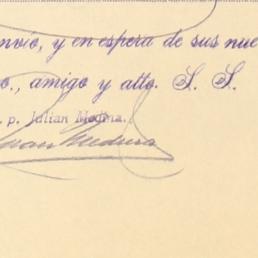 nvío, y en espera de sus nue
o., amigo y atto. S. S.
. p. Julian Medina.
Julian Medina